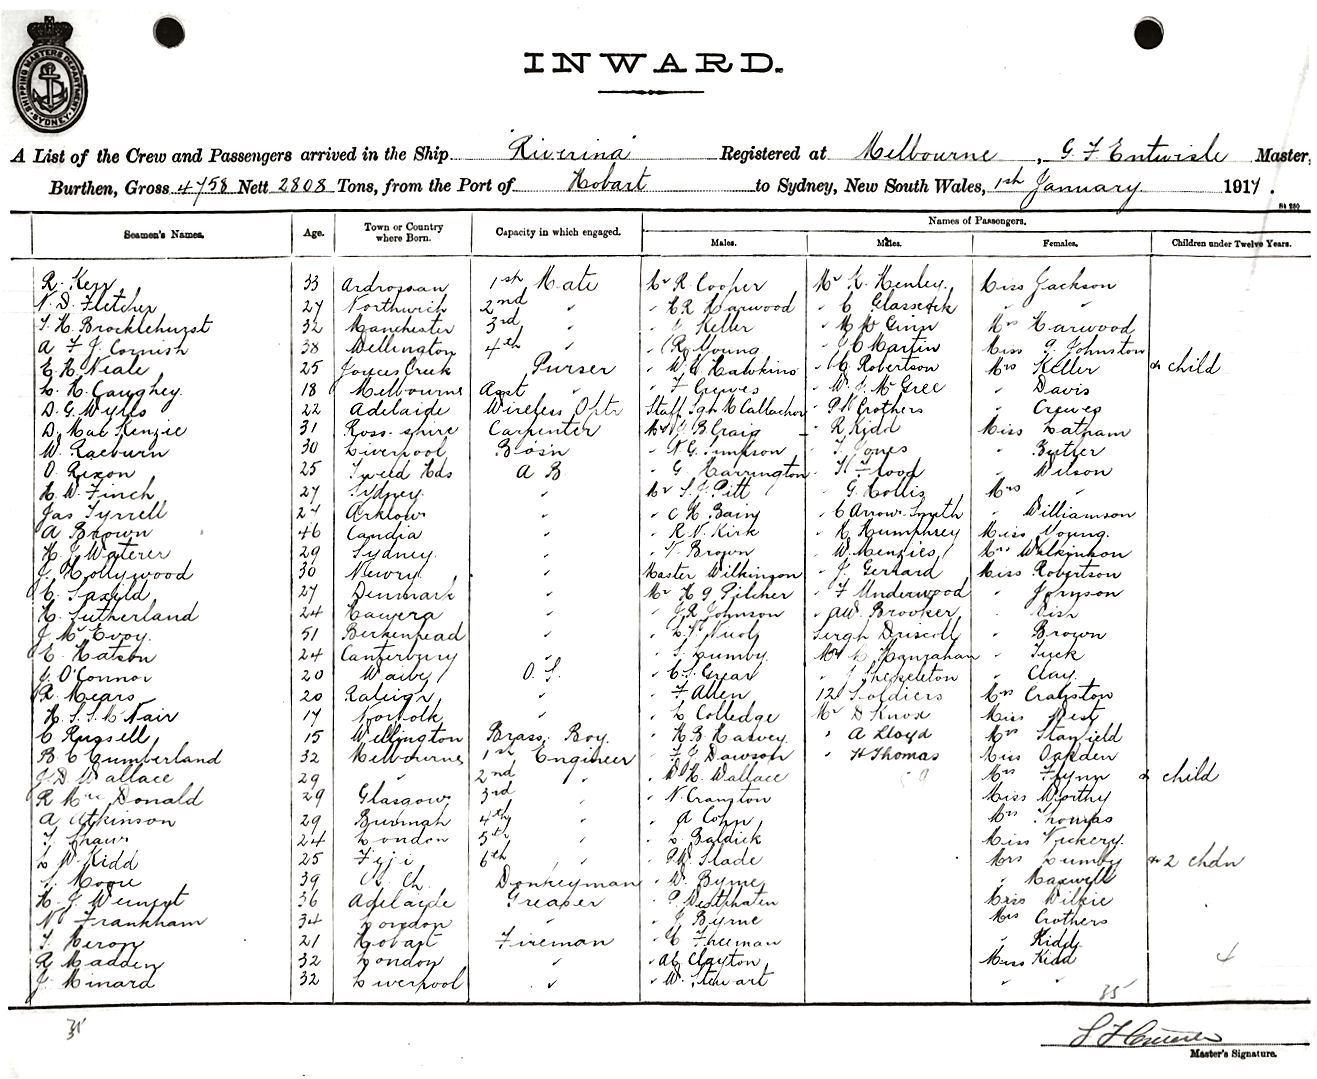 SHIPPING MASTERS DEPARTMENT SYDNEY
INWARD.
A List of the Crew and Passengers arrived in the Ship "Riverina" Registered at Melbourne, G F Entwisle Master,
Burthen, Gross 4758 Nett 2808 Tons, from the Port of Hobart to Sydney, New South Wales, 1st January 1917.
Names of Passengers.
Seamen's Names. Age. Town or Country where Born. Capacity in which engaged. Males. Males. Females. Children under Twelve Years.
R. Kerr 33 Ardrossan 1st Mate Mr R Cooper Mr K. Henley Miss Jackson
N. D. Fletcher 27 Northwich 2nd " " H R Harwood " C " "
S. H. Brocklehurst 32 Manchester 3rd " " J Keller " Mc Ginn Mrs Harwood
A F J Cornish 38 Wellington 4th " " R Young " J C Martin Miss G Johnston
E H Neale 25 Joyces Creek Purser " W H Hawkins " C Robertson Mrs Keller & child
L. H. Caughey 18 Melbourne Asst " F Crewes " W. J. McGree " Davis
D. G. Wylls 22 Adelaide Wireless Optr Staff Sgh McCallachor " P N Crothers " Crewes
D. MacKenzie 31 Ross-shire Carpenter Mr J B Craig " R Kidd Miss Latham
W. Raeburn 30 Liverpool Bosn " N G Simpson " T Jones " Butler
O. Rixon 25 Tweed Hds A B " G Harrington " H Flood " Wilson
H. W. Finch 27 Sydney " Mr S. J. Pitt " G. Hollis Mrs "
Jas Tyrrell 24 Arklow " " C H Bain " C Arrow Smith " Williamson
A Brown 46 Candia " " R N. Kirk " H Humphrey Miss Young
H. J. Waterer 29 Sydney " " V. Brown " W Menzies Mrs Wilkinson
J. Hollywood 30 Newry " Master Wilkinson " J. Gerrard Miss Robertson
C. Saxild 27 Denmark " Mr H G Pilcher " F Underwood " Johnson
H. Sutherland 24 Hawera " " J R Johnson " A W Brooker "
J. McEvoy 51 Birkenhead " " L. V. Sergh Driscoll " Brown
E. Hatson 24 Canterbury " " S. Lumby Mr C Hanrahan " Tuck
J. O'Connor 20 O. S. " C S. Grear " J " Clay
R. Mears 20 Raleigh " " F Allen 12 Soldiers Mrs Cranston
H. S. S. McNair 17 Norfolk " " L Colledge Mr D Knox Miss West
C Russell 15 Wellington Brass Boy " H B Harvey " A Lloyd Mrs Stanfield
B. C Cumberland 32 Melbourne 1st Engineer " F J Dawson " H Thomas Miss Oakden
J. D Wallace 29 " 2nd " " W H. Wallace Mrs Flynn & child
R MacDonald 29 Glasgow 3rd " " N. Cranston Miss Worthy
A Atkinson 29 Burmah 4th " " A Cohn Mrs Thomas
T. Shaw 24 London 5th " " L. Baldick Miss Vickery
L W Kidd 25 Fiji 6th " " P W Slade Mrs Lumby & 2 chdn
S. Moore 39 Ch. Ch. Donkeyman " W. Byrne " Maxwell
H. J. 36 Adelaide Greaser " P. Westhaten Miss Wilkie
N. Frankham 34 London " " J Byrne Mrs Crothers
T. Heron 21 Hobart Fireman " C Freeman " Kidd
R Madden 32 London " " A C Clayton Miss Kidd 4
J. Minard 32 Liverpool " " W. Stewart " "
35 35
Master's Signature.